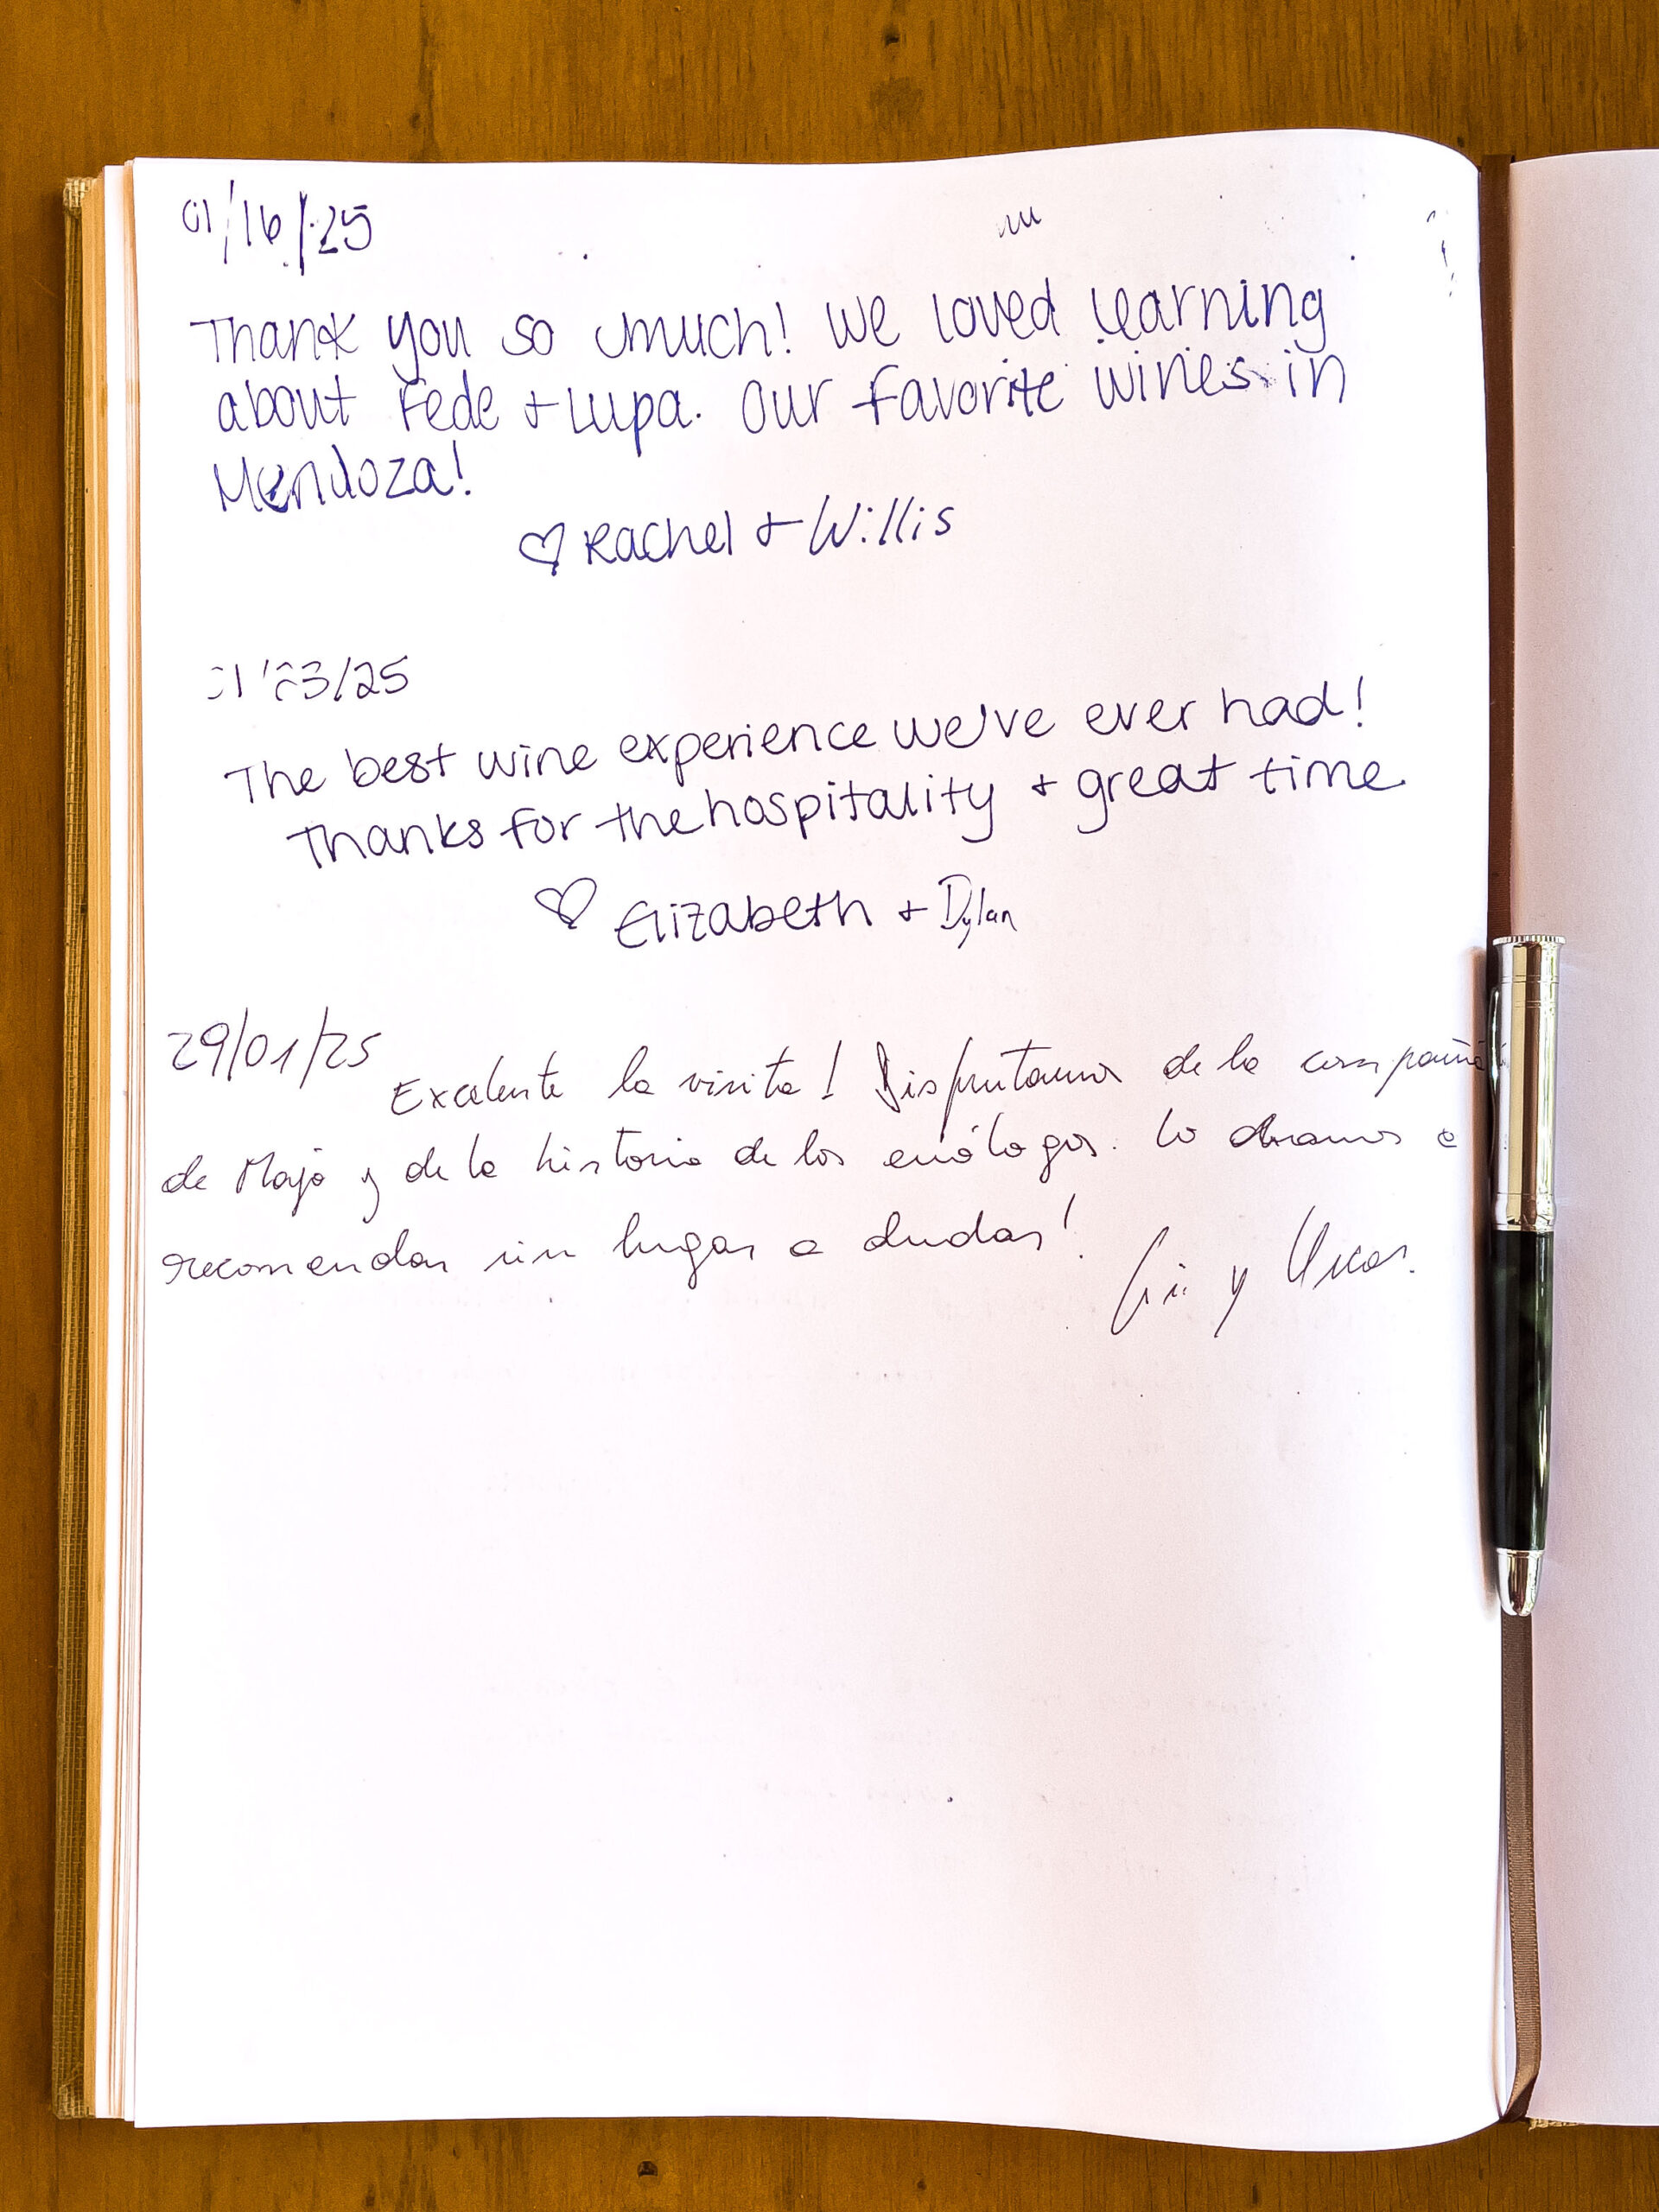 01/16/25
Thank you so much! We loved learning
about Fede + Lupa. Our favorite wines in
Mendoza!
♡ Rachel + Willis
/25
The best wine experience we've ever had!
Thanks for the hospitality + great time
♡ Elizabeth + Dylan
29/01/25
Excelente la visita! Disfrutamos de la compañía
de Majo y de la historia de los enólogos. Lo vamos a
recomendar sin lugar a dudas!
y